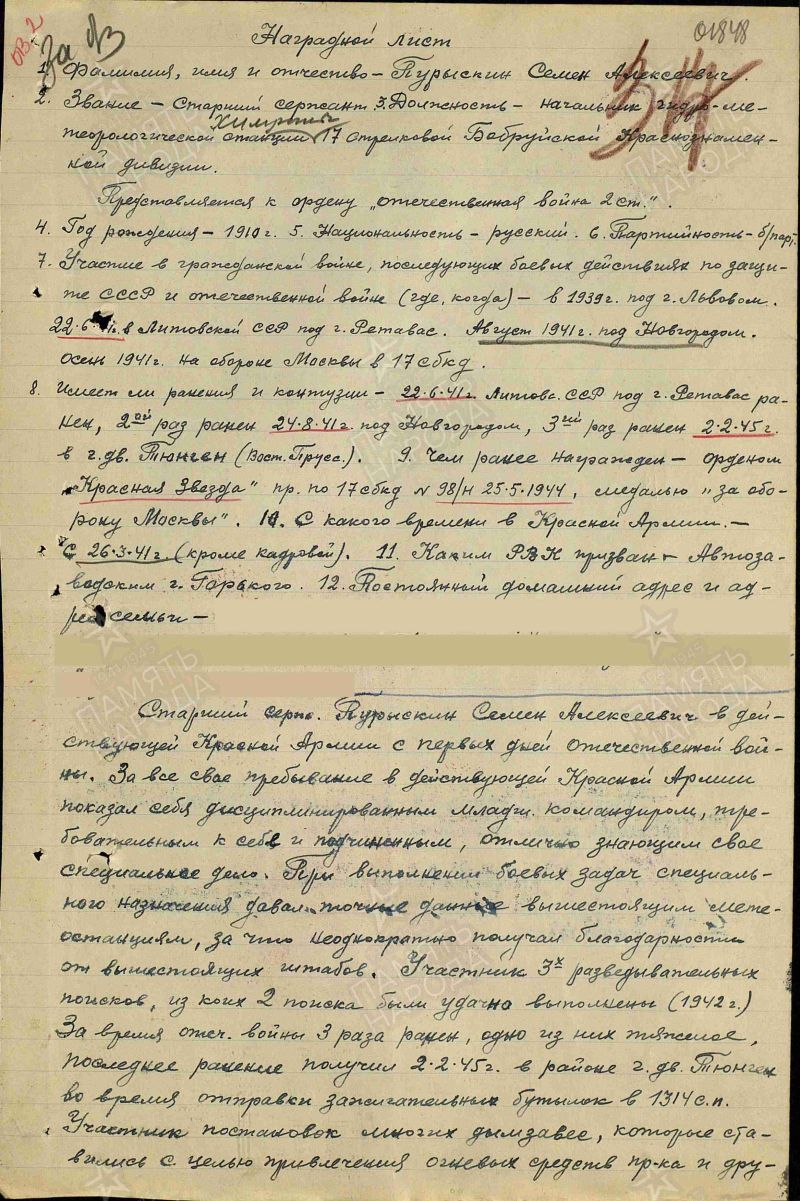 ОВ.2
За ОВ
01848
Наградной лист
1. Фамилия, имя и отчество – Пурыскин Семен Алексеевич.
2. Звание – Старший сержант 3. Должность – начальник гидро-ме-
химроты
теорологической станции 17 стрелковой Бобруйской Краснознамен-
ной дивизии.
Представляется к ордену „отечественная война 2 ст.".
4. Год рождения – 1910 г. 5. Национальность – русский. 6. Партийность – б/парт.
7. Участие в гражданской войне, последующих боевых действиях по защи-
те СССР и отечественной войне (где, когда) – в 1939 г. под г. Львовом.
22.6.41г. в Литовской ССР под г. Ретавас. Август 1941 г. под Новгородом.
осень 1941 г. на обороне Москвы в 17 сбкд.
8. Имеет ли ранения и контузии – 22.6.41 г. Литовс. ССР под г. Ретавас ра-
нен, 2ой раз ранен 24.8.41 г. под Новгородом, 3ий раз ранен 2.2.45 г.
в г. дв. Тюнген (Вост. Прусс.). 9. Чем ранее награжден – орденом
„Красная Звезда" пр. по 17 сбкд N 98/н 25.5.1944, медалью „за обо-
рону Москвы". 10. С какого времени в Красной Армии. –
С 26.3.41 г. (кроме кадровой). 11. Каким РВК призван – Автоза-
водским г. Горького. 12. Постоянный домашний адрес и ад-
рес семьи –
Старший серж. Пурыскин Семен Алексеевич в дей-
ствующей Красной Армии с первых дней отечественной вой-
ны. За все свое пребывание в действующей Красной Армии
показал себя дисциплинированным младш. командиром, тре-
бовательным к себе и подчиненным, отлично знающим свое
специальное дело. При выполнении боевых задач специаль-
ного назначения давал точные данные вышестоящим мете-
останциям, за что неоднократно получал благодарности
от вышестоящих штабов. Участник 3х разведывательных
поисков, из коих 2 поиска были удачно выполнены (1942 г.)
За время отеч. войны 3 раза ранен, одно из них тяжелое,
последнее ранение получил 2.2.45 г. в районе г. дв. Тюнген
во время отправки зажигательных бутылок в 1314 с.п.
Участник постановок многих дымзавес, которые ста-
вились с целью привлечения огневых средств пр-ка и дру-
ПАМЯТЬ НАРОДА